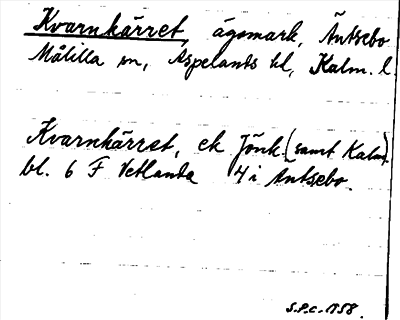 Kvarnkärret, ägomark, Äntsebo
Målilla sn, Aspelands hd, Kalm. l.
Kvarnkärret, ek Jönk. (samt Kalm).
bl. 6 F Vetlanda 4 i Äntsebo.
S.P.C. 1958.